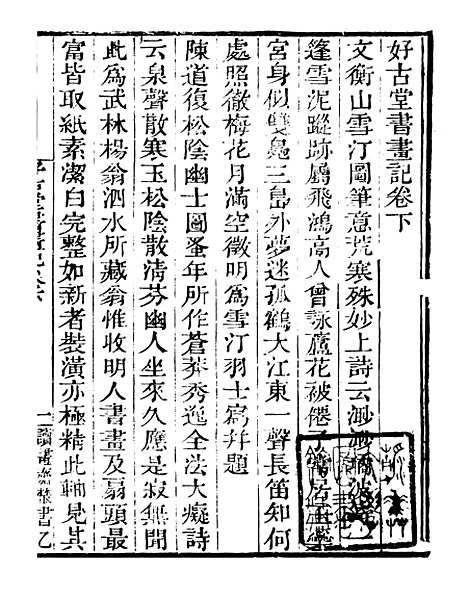 好古堂書畫記卷下
文衡山雪汀圖筆意荒寒殊妙上詩云渺渺
篷雪泥蹤跡屬飛鴻高人曾詠蘆花被僊
宮身似雙鳧三島外夢迷孤鶴大江東一聲長笛知何
處照徹梅花月滿空徵明爲雪汀羽士寫并題
陳道復松陰幽士圖蚤年所作蒼莽秀逸全法大癡詩
云泉聲散寒玉松陰散清芬幽人坐來久應是寂無聞
此爲武林楊翁泗水所藏翁惟收明人書畫及扇頭最
富皆取紙素潔白完整如新者裝潢亦極精此軸見其
一讀畫齋叢書乙